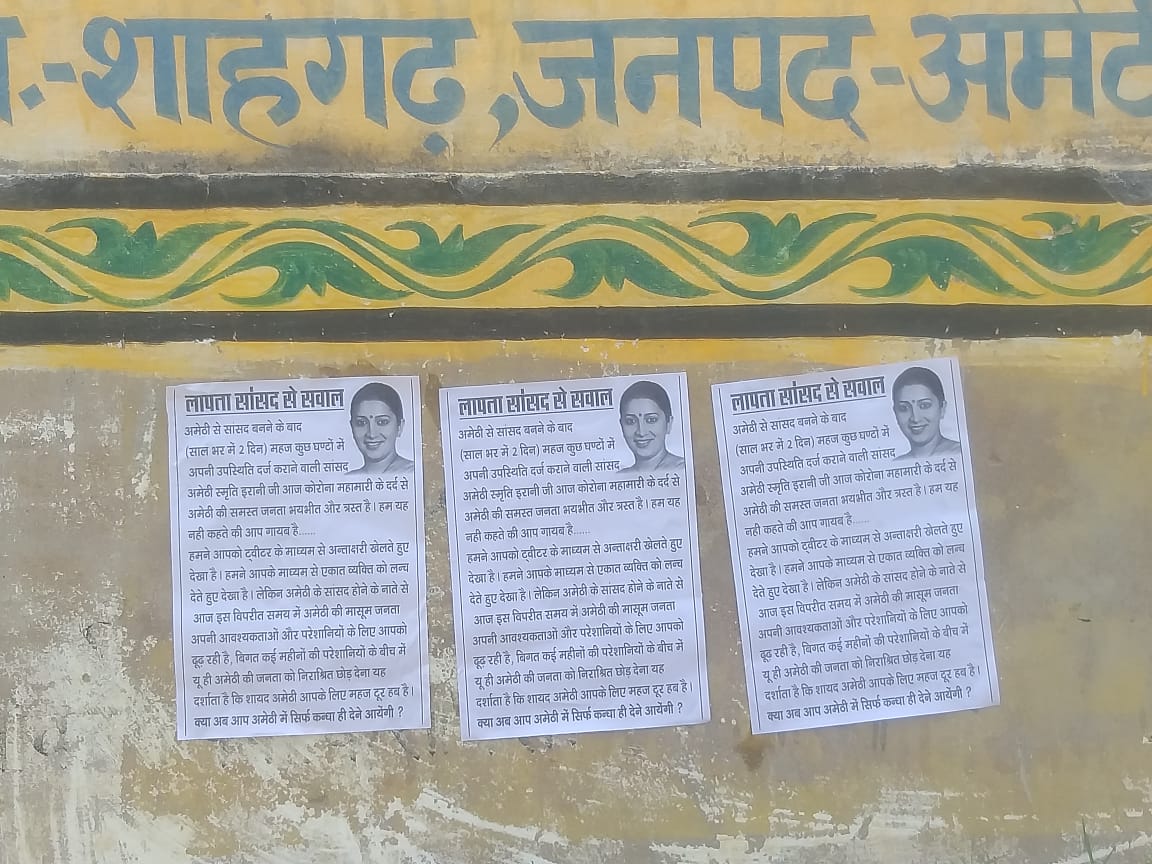 -शाहगढ़, जनपद-अमेठ
लापता सांसद से सवाल
अमेठी से सांसद बनने के बाद
(साल भर में 2 दिन) महज कुछ घण्टों में
अपनी उपस्थिति दर्ज कराने वाली सांसद
अमेठी स्मृति इरानी जी आज कोरोना महामारी के दर्द से
अमेठी की समस्त जनता भयभीत और त्रस्त है। हम यह
नही कहते की आप गायब है......
हमने आपको ट्वीटर के माध्यम से अन्ताक्षरी खेलते हुए
देखा है। हमने आपके माध्यम से एकात व्यक्ति को लन्च
देते हुए देखा है। लेकिन अमेठी के सांसद होने के नाते से
आज इस विपरीत समय में अमेठी की मासूम जनता
अपनी आवश्यकताओं और परेशानियों के लिए आपको
ढूढ रही है, बिगत कई महीनों की परेशानियों के बीच में
यू ही अमेठी की जनता को निराश्रित छोड़ देना यह
दर्शाता है कि शायद अमेठी आपके लिए महज टूर हब है।
क्या अब आप अमेठी में सिर्फ कन्धा ही देने आयेंगी ?
लापता सांसद से सवाल
अमेठी से सांसद बनने के बाद
(साल भर में 2 दिन) महज कुछ घण्टों में
अपनी उपस्थिति दर्ज कराने वाली सांसद
अमेठी स्मृति इरानी जी आज कोरोना महामारी के दर्द से
अमेठी की समस्त जनता भयभीत और त्रस्त है। हम यह
नही कहते की आप गायब है......
हमने आपको ट्वीटर के माध्यम से अन्ताक्षरी खेलते हुए
देखा है। हमने आपके माध्यम से एकात व्यक्ति को लन्च
देते हुए देखा है। लेकिन अमेठी के सांसद होने के नाते से
आज इस विपरीत समय में अमेठी की मासूम जनता
अपनी आवश्यकताओं और परेशानियों के लिए आपको
ढूढ रही है, बिगत कई महीनों की परेशानियों के बीच में
यू ही अमेठी की जनता को निराश्रित छोड़ देना यह
दर्शाता है कि शायद अमेठी आपके लिए महज टूर हब है।
क्या अब आप अमेठी में सिर्फ कन्धा ही देने आयेंगी ?
लापता सांसद से सवाल
अमेठी से सांसद बनने के बाद
(साल भर में 2 दिन) महज कुछ घण्टों में
अपनी उपस्थिति दर्ज कराने वाली सांसद
अमेठी स्मृति इरानी जी आज कोरोना महामारी के दर्द से
अमेठी की समस्त जनता भयभीत और त्रस्त है। हम यह
नही कहते की आप गायब है......
हमने आपको ट्वीटर के माध्यम से अन्ताक्षरी खेलते हुए
देखा है। हमने आपके माध्यम से एकात व्यक्ति को लन्च
देते हुए देखा है। लेकिन अमेठी के सांसद होने के नाते से
आज इस विपरीत समय में अमेठी की मासूम जनता
अपनी आवश्यकताओं और परेशानियों के लिए आपको
ढूढ रही है, बिगत कई महीनों की परेशानियों के बीच में
यू ही अमेठी की जनता को निराश्रित छोड़ देना यह
दर्शाता है कि शायद अमेठी आपके लिए महज टूर हब है।
क्या अब आप अमेठी में सिर्फ कन्धा ही देने आयेंगी ?